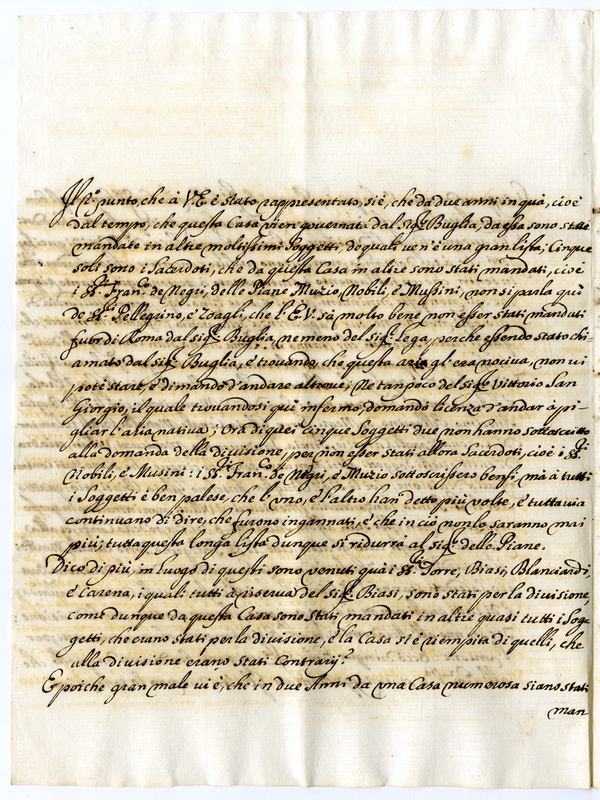 Il p.o punto, che à V.E. è stato rappresentato, si è, che da due anni in quà, cioè
dal tempo, che questa Casa vien governata dal sig.r Buglia, da essa sono state
mandate in altre moltissimi Soggetti, de quali ve n'è una gran lista, Cinque
soli sono i Sacerdoti, che da questa Casa in altre sono stati mandati, cioè
i SS.ri Fran.co de Negri, delle Piane, Muzio, Nobili, e Mussini, non si parla quì
de SS.ri Pellegrino, e Zoagli, che l'E.V. sà molto bene non esser stati mandati
fuor di Roma dal sig.r Buglia, ne meno del sig.r Lega, perche essendo stato chi=
amato dal sig.r Buglia, e trovando, che questa aria gl'era nociva, non vi
potè stare, e dimandò d'andare altrove; Ne tanpoco del sig.r Vittorio San
Giorgio, il quale trovandosi quì infermo, domandò licenza d'andar à pi=
gliar l'aria nativa; Ora di quei cinque Soggetti due non hanno sottoscritto
alla domanda della divisione, per non esser stati allora Sacerdoti, cioè i SS.ri
Nobili, e Musini: i SS.ri Fran.co de Negri, e Muzio sottoscrissero bensì, mà à tutti
i Soggetti è ben palese, che l'uno, e l'altro han' detto più volte, e tuttavia
continuano di dire, che furono ingannati, e che in ciò non lo saranno mai
più; tutta questa longa lista dunque si ridurrà al sig.r delle Piane.
Dico di più, in luogo di questi sono venuti quà i SS.ri Torre, Biasi, Blanciardi,
e Carena, i quali tutti à riserva del sig.r Biasi, sono stati per la divisione,
come dunque da questa Casa sono stati mandati in altre quasi tutti i Sog=
getti, che erano stati per la divisione, e la Casa si è riempita di quelli, che
alla divisione erano stati Contrarij?
E poiche gran male vi è, che in due Anni da una Casa numerosa siano stati
man